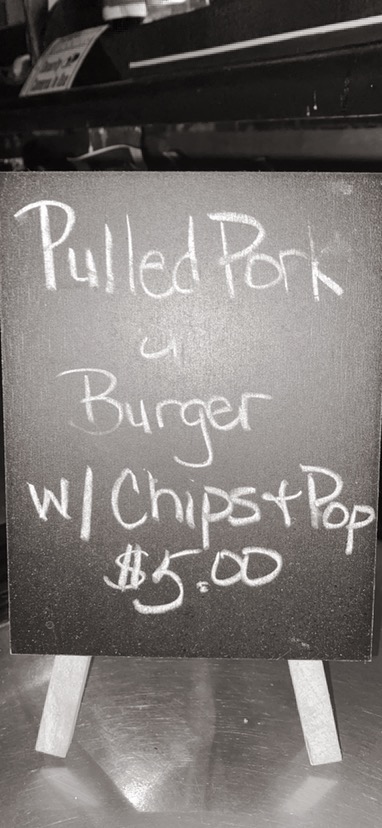 Pulled Pork
Burger
w/ Chips + Pop
$5.00